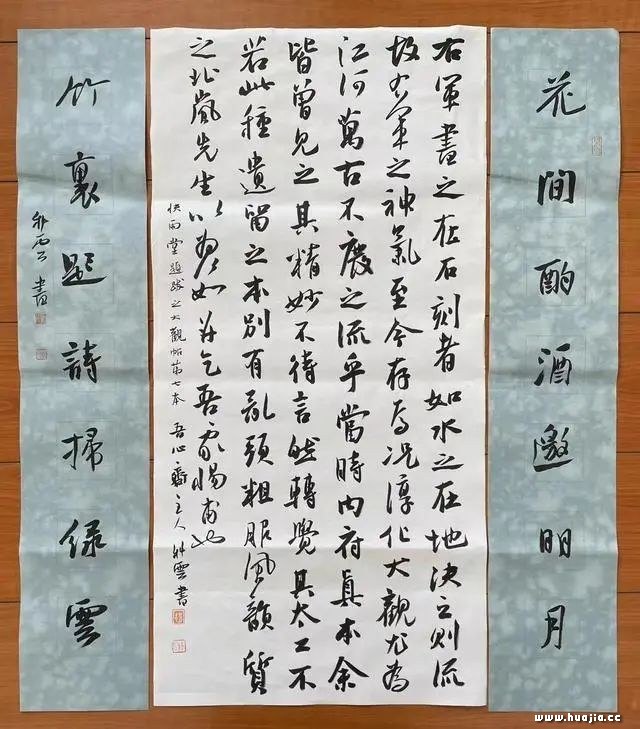 花間酌酒邀明月
右軍書之在石刻者如水之在地決之則流
故右軍之神氣至今存焉況淳化大觀尤為
江河萬古不廢之流乎當時內府真本余
皆曾見之其精妙不待言然轉覺其太工不
若此種遺留之本別有亂頭粗服風韻質
之北嵐先生以為如并乞吾家惕甫
快雨堂題跋之大觀帖第七本 吾心齋主人 雲書
竹裏題詩掃綠雲
書
www.huajia.cc